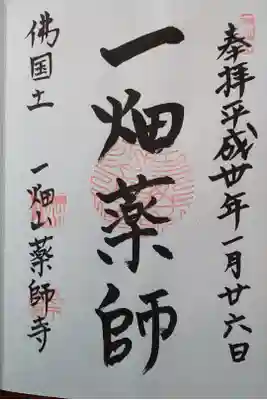 奉拝平成卅年一月廿六日
一畑薬師
佛国土
一畑山薬師寺